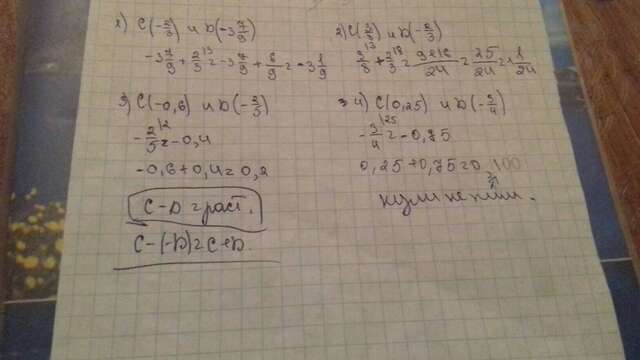 1) C(-2/3) и D(-3 7/9)
-3 7/9 + 2/3 = -3 7/9 + 6/9 = -3 1/9
2) C(3/8) и D(-2/3)
3/8 + 2/3 = 9+16/24 = 25/24 = 1 1/24
3) C(-0,6) и D(-2/5)
-2/5 = -0,4
-0,6+0,4=0,2
C-D = раст.
C-(-D)=C+D.
4) C(0,25) и D(-3/4)
-3/4 = -0,75
0,25+0,75=0,100
нули не пиши.